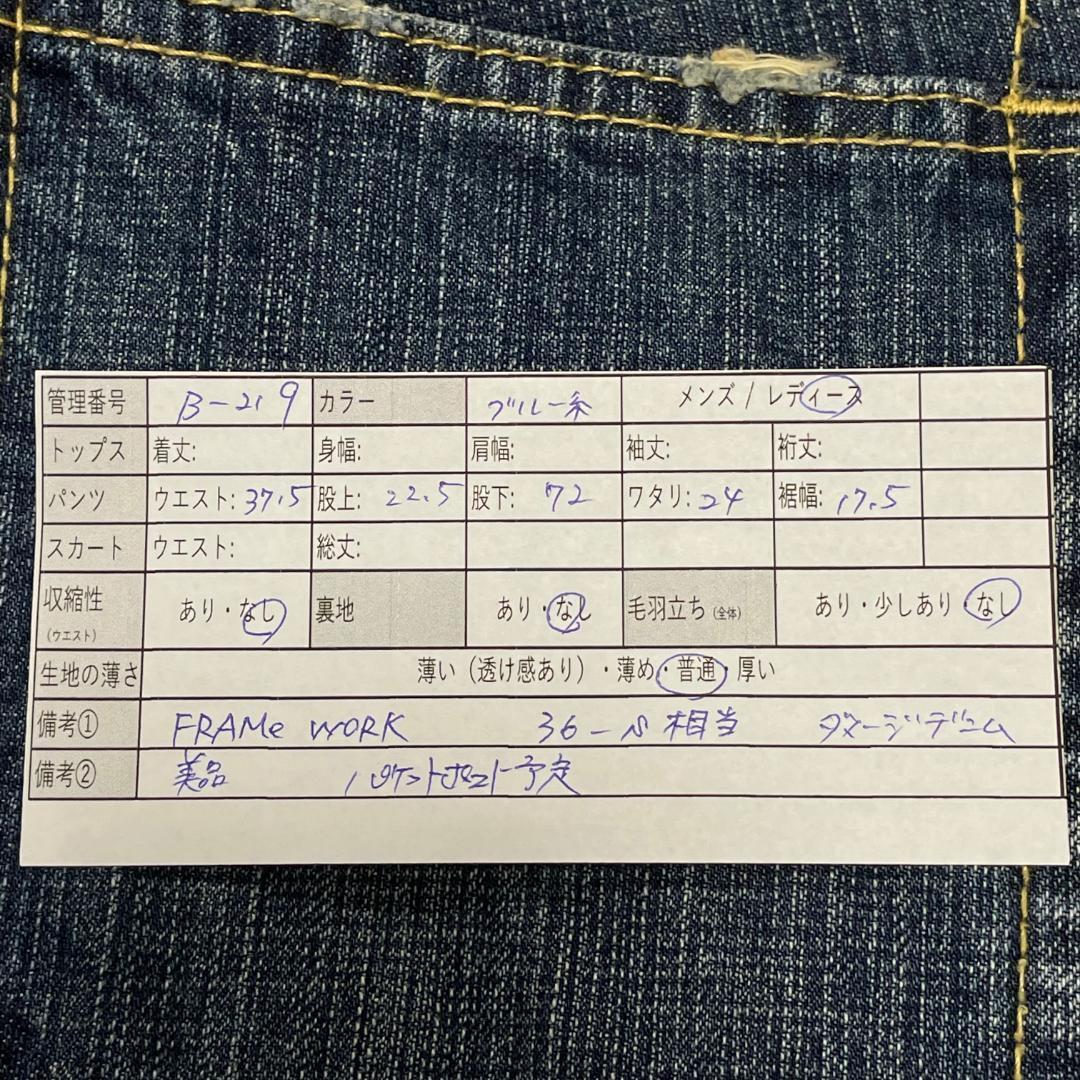 管理番号 B-219 カラー ブルー系 メンズ / レディース
トップス 着丈: 身幅: 肩幅: 袖丈: 裄丈:
パンツ ウエスト: 37.5 股上: 22.5 股下: 72 ワタリ: 24 裾幅: 17.5
スカート ウエスト: 総丈:
収縮性 (ウエスト) あり・なし 裏地 あり・なし 毛羽立ち (全体) あり・少しあり・なし
生地の薄さ 薄い（透け感あり）・薄め・普通・厚い
備考① FRAMe WORK 36-S相当 ダメージデニム
備考② 美品 予定